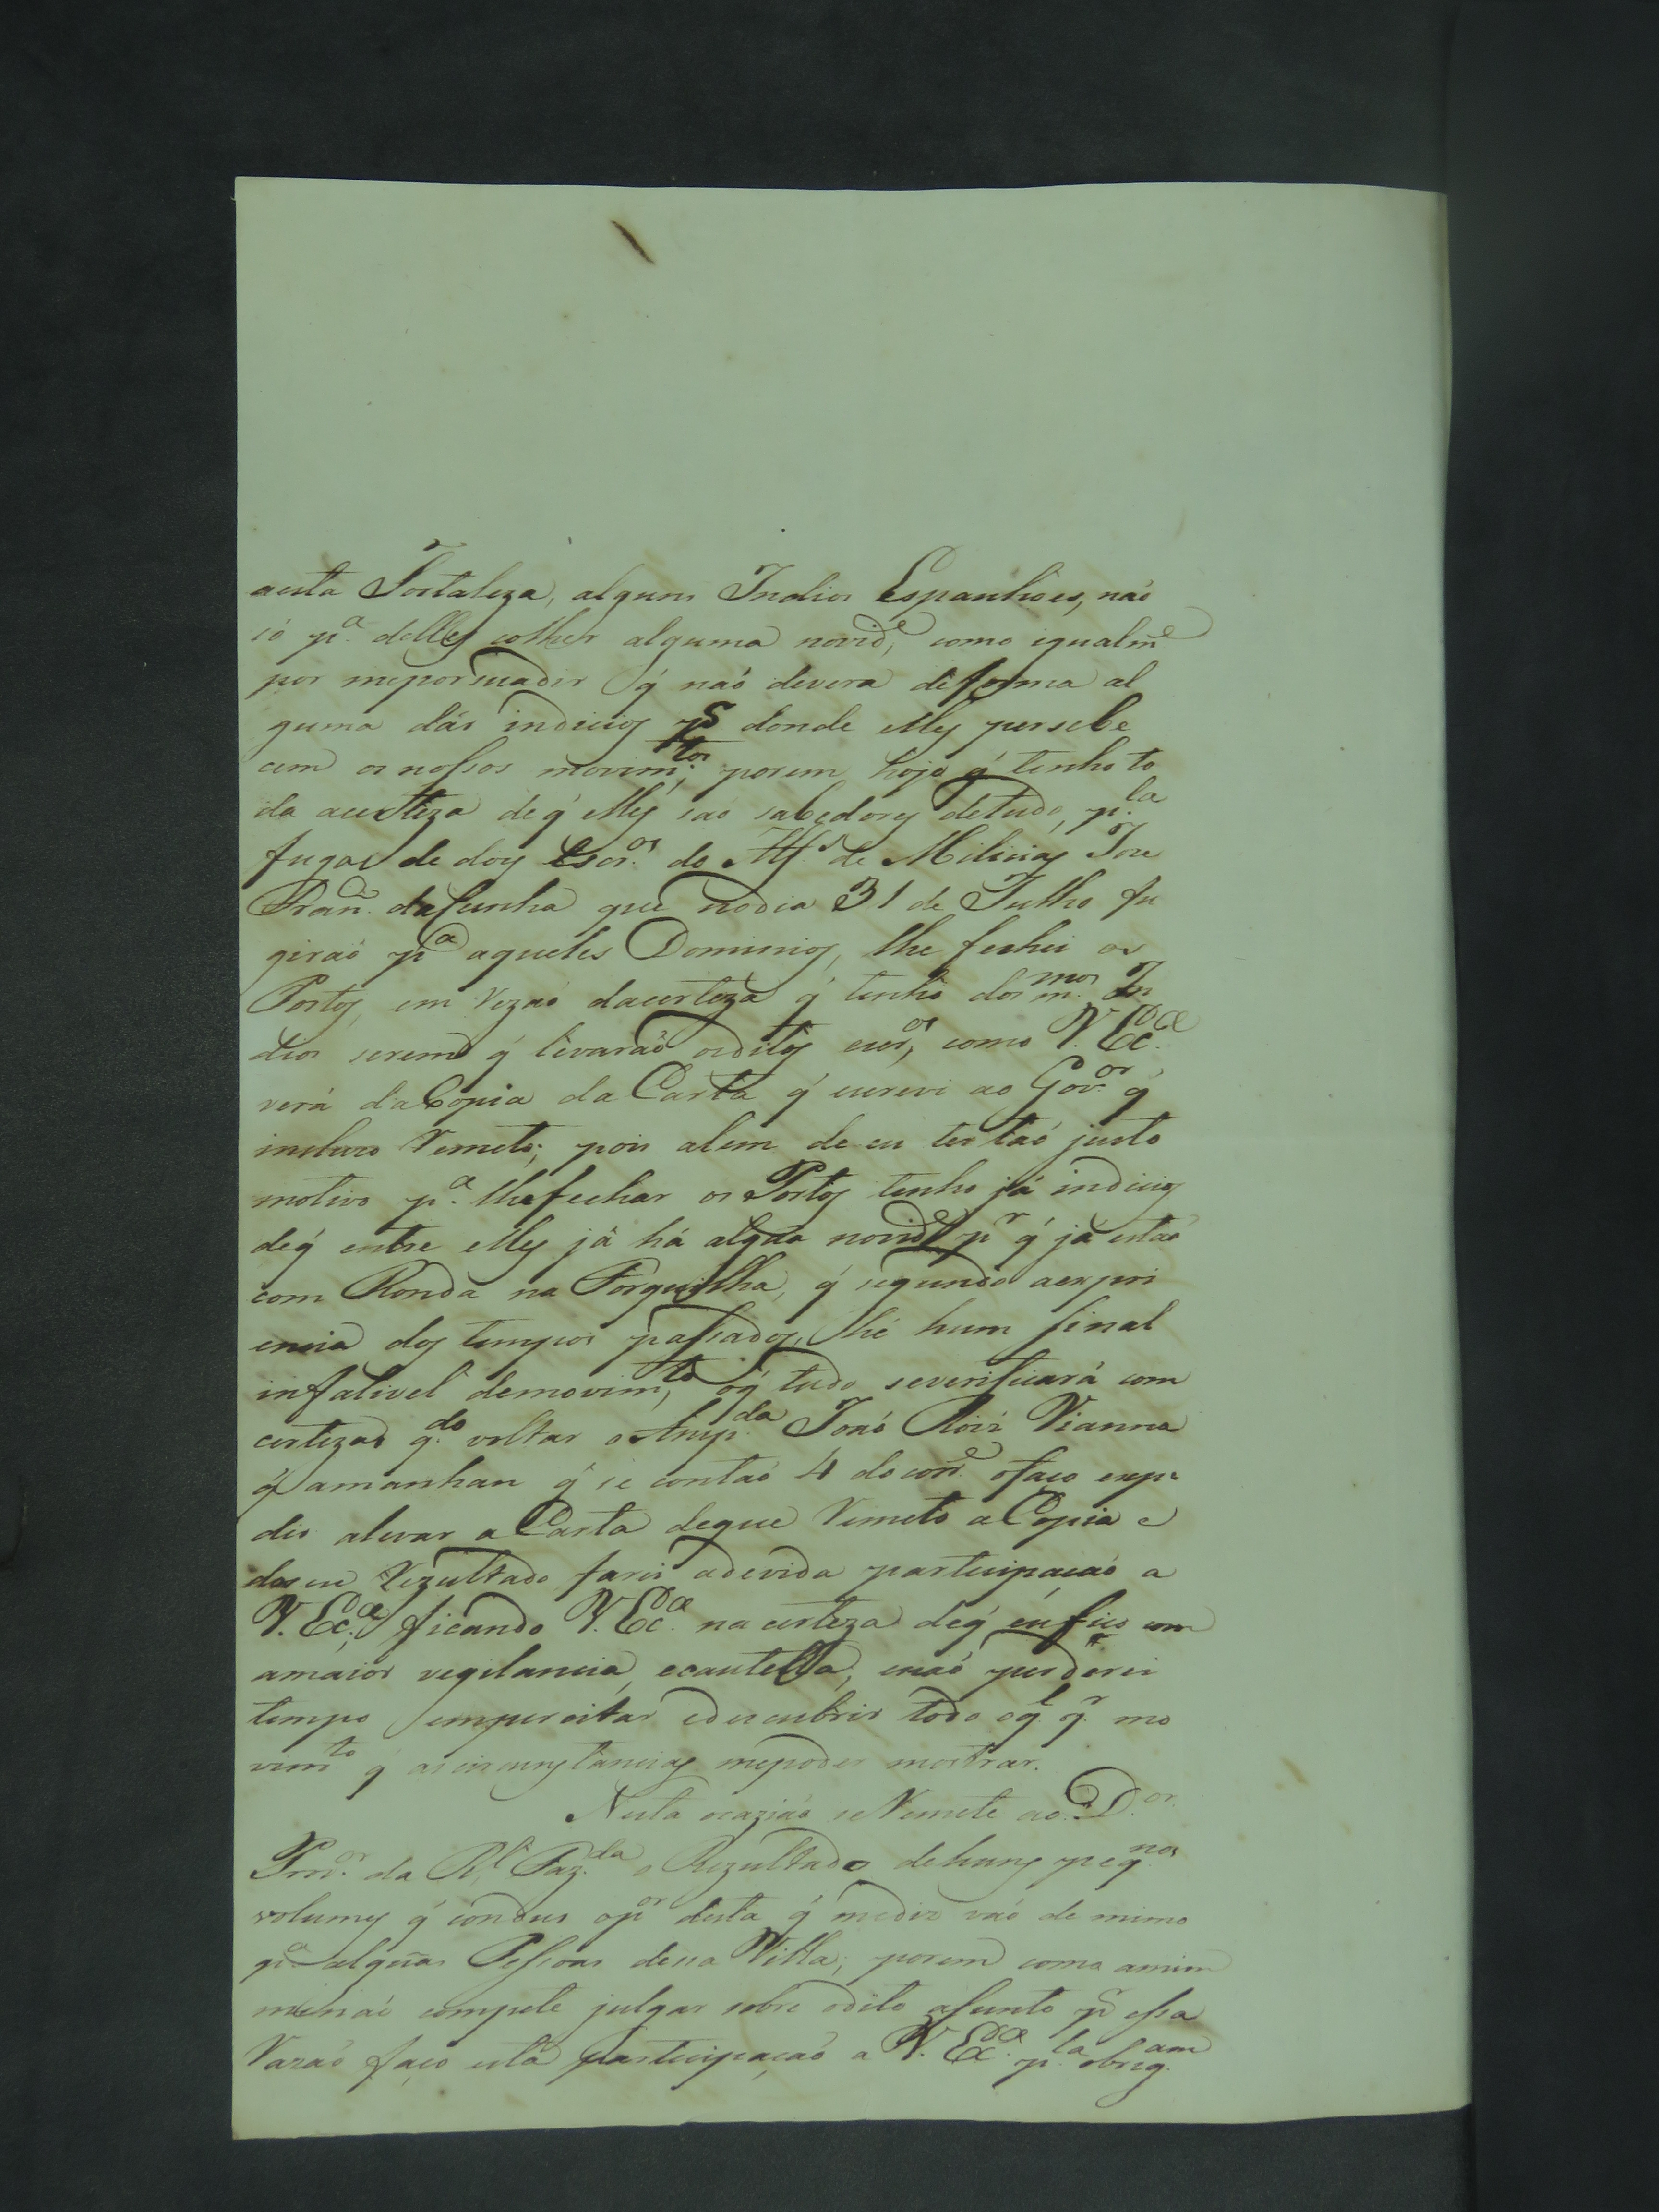 aesta Fortaleza, alguns Indios Espanhoes, naó
só p.ª delles colher alguma novid.e, como igualm.e
por mepersuadir q́ naó devera deforma al
guma dár indicios p.r donde elles persebe
cem os nossos movim.tos, porem hoje q́ tenho to
da acerteza de q́ elles saó sabedores detudo, p.la
fuga de dois Escr.os do Alf.s de Milicias Joze
Fran.co daCunha que nodia 31 de Julho fu
giraó p.ª aqueles Dominios, lhe fechei os
Portos, em rezaó dacerteza q́ tenho dos m.mos In
dios serem q́ levaraó osditos escr.os, como V. Ex.cª
verá daCopia da Carta q́ escrevi ao Gov.or q́
incluzo remeto; pois alem de eu ter taó justo
motivo p.ª lhefechar os Portos tenho já indicios
deq́ entre elles já há algũa novid.e p.r q́ já estaó
com Ronda na Forquilha, q́ segundo aexperi
encia dos tempos passados, hé hum sinal
infalivel demovim.to, oq́ tudo severificará com
certeza q.do voltar o Ansp.da Joaó Roiz Vianna
q́ amanhan q́ se contaó 4 do corr.e ofaço expe
dir alevar a Carta deque remeto a Copia e
doseu rezultado farei adevida participaçaó a
V. Ex.cª, ficando V. Ex.cª na certeza deq́ eu fico com
amaior vegilancia, ecautella, enaó perderei
tempo emperscitar edescubrir todo eq.l q.r mo
vim.to q́ as circunstancias mepoder mostrar.
Nesta ocaziaó seremete ao D.or
Prov.or da R.l Faz.da o Rezultado dehuns peq.nos
volumes q́ conduz op.or desta q́ mediz vaó de mimo
p.ª algũas Pessoas dessa Villa; porem como amim
menaó compete julgar sobre odito asunto p.r essa
razaó faço esta participaçaó a V. Ex.cª p.la obrig.am